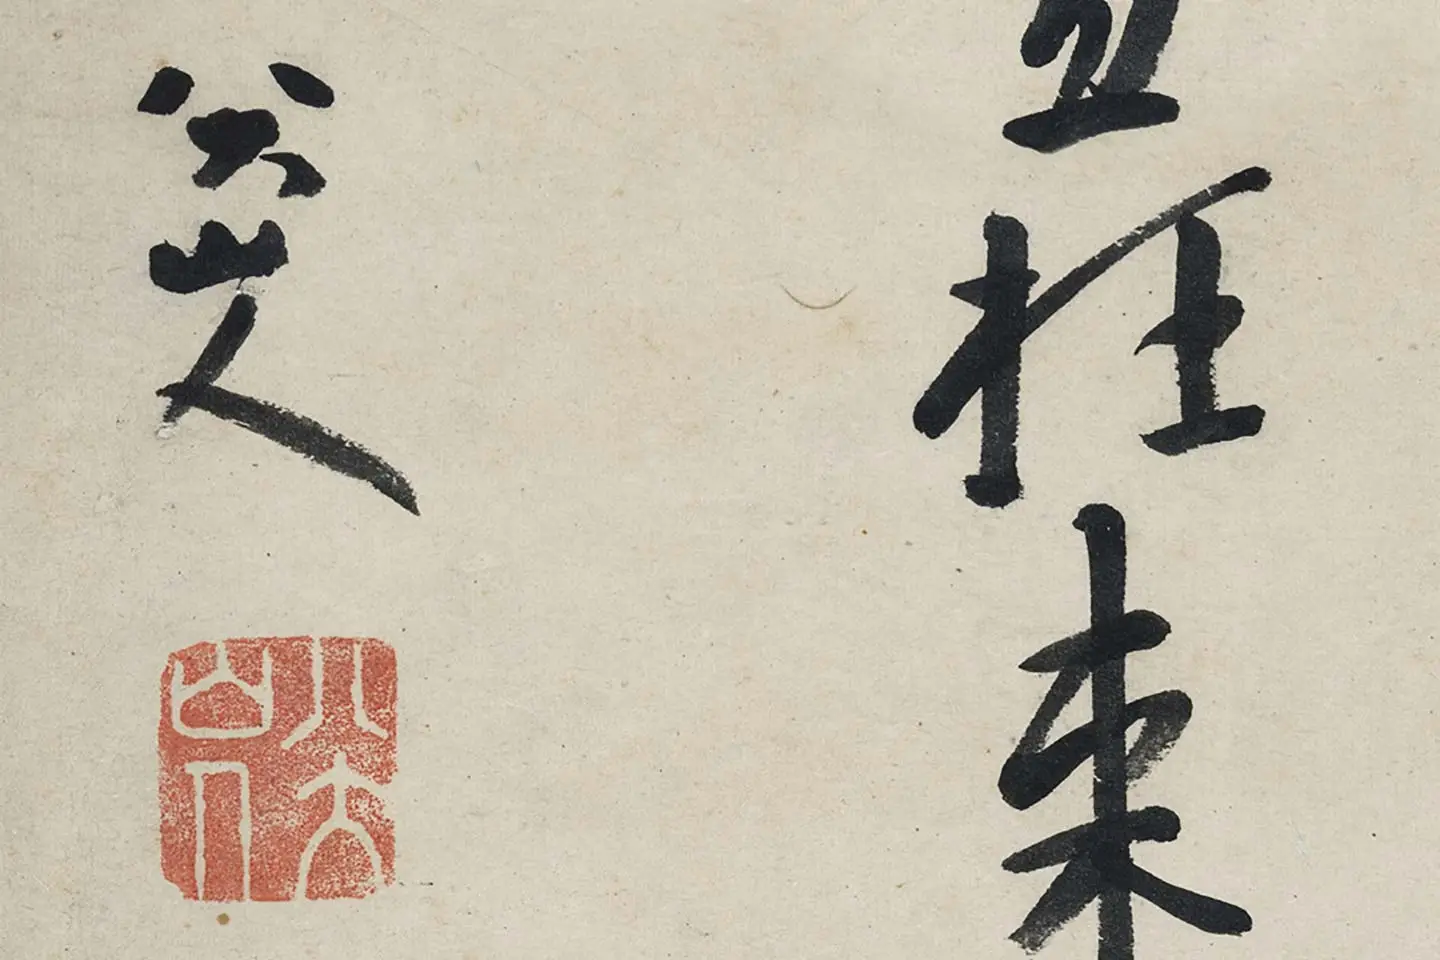 枉
八大山人
八大
山人